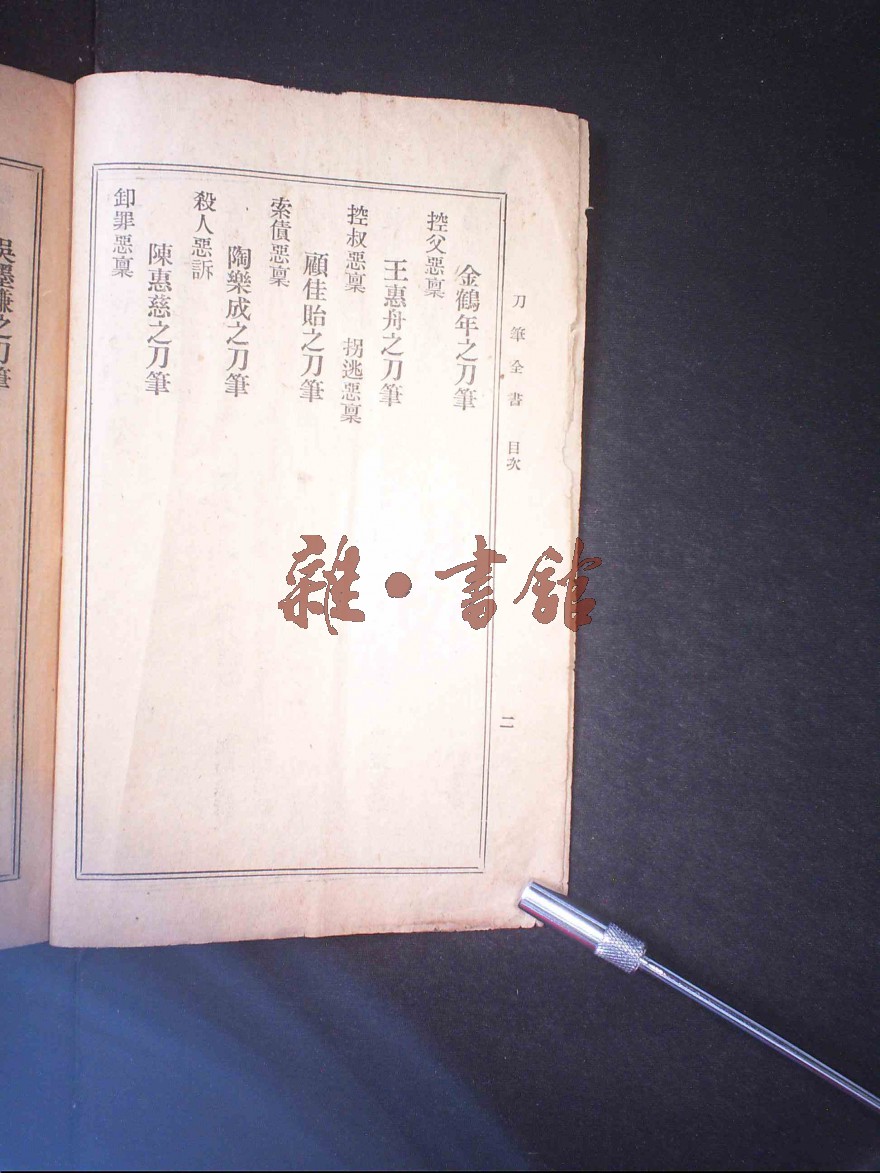 刀筆全書 目次
二
金鶴年之刀筆
控父惡稟
王惠舟之刀筆
控叔惡稟 拐逃惡稟
顧佳貽之刀筆
索債惡稟
陶樂成之刀筆
殺人惡訴
陳惠慈之刀筆
卸罪惡稟
之刀筆
雜·書館